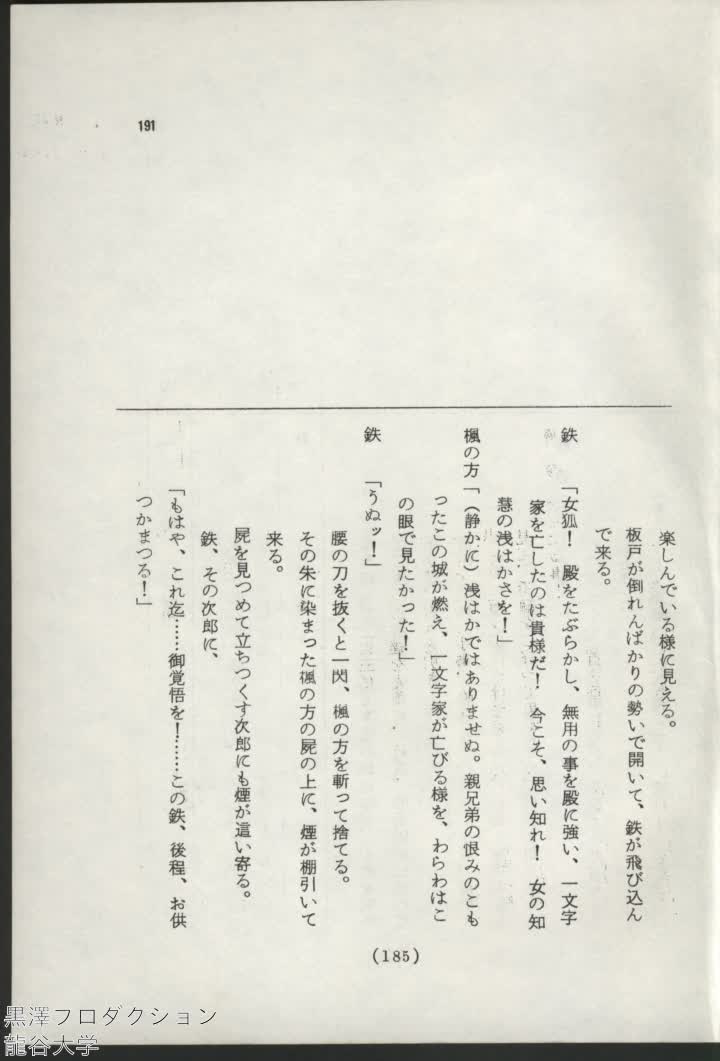 191
楽しんでいる様に見える。
板戸が倒れんばかりの勢いで開いて、鉄が飛び込ん
で来る。
鉄 「女狐！ 殿をたぶらかし、無用の事を殿に強い、一文字
家を亡したのは貴様だ！ 今こそ、思い知れ！ 女の知
慧の浅はかさを！」
楓の方「（静かに）浅はかではありませぬ。親兄弟の恨みのこも
ったこの城が燃え、一文字家が亡びる様を、わらわはこ
の眼で見たかった！」
鉄 「うぬッ！」
腰の刀を抜くと一閃、楓の方を斬って捨てる。
その朱に染まった楓の方の屍の上に、煙が棚引いて
来る。
屍を見つめて立ちつくす次郎にも煙が這い寄る。
鉄、その次郎に、
「もはや、これ迄……御覚悟を！……この鉄、後程、お供
つかまつる！」
(185)
黒澤プロダクション
龍谷大学